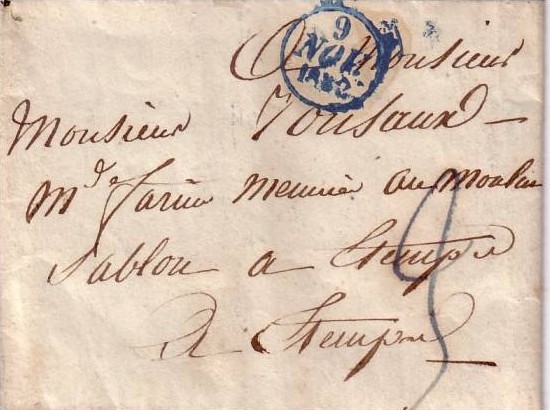 9
NOV.
1832
A Monsieur
Monsieur Tousaux
md farin meunier au moulin
Sablon a Etempe
A Etempe